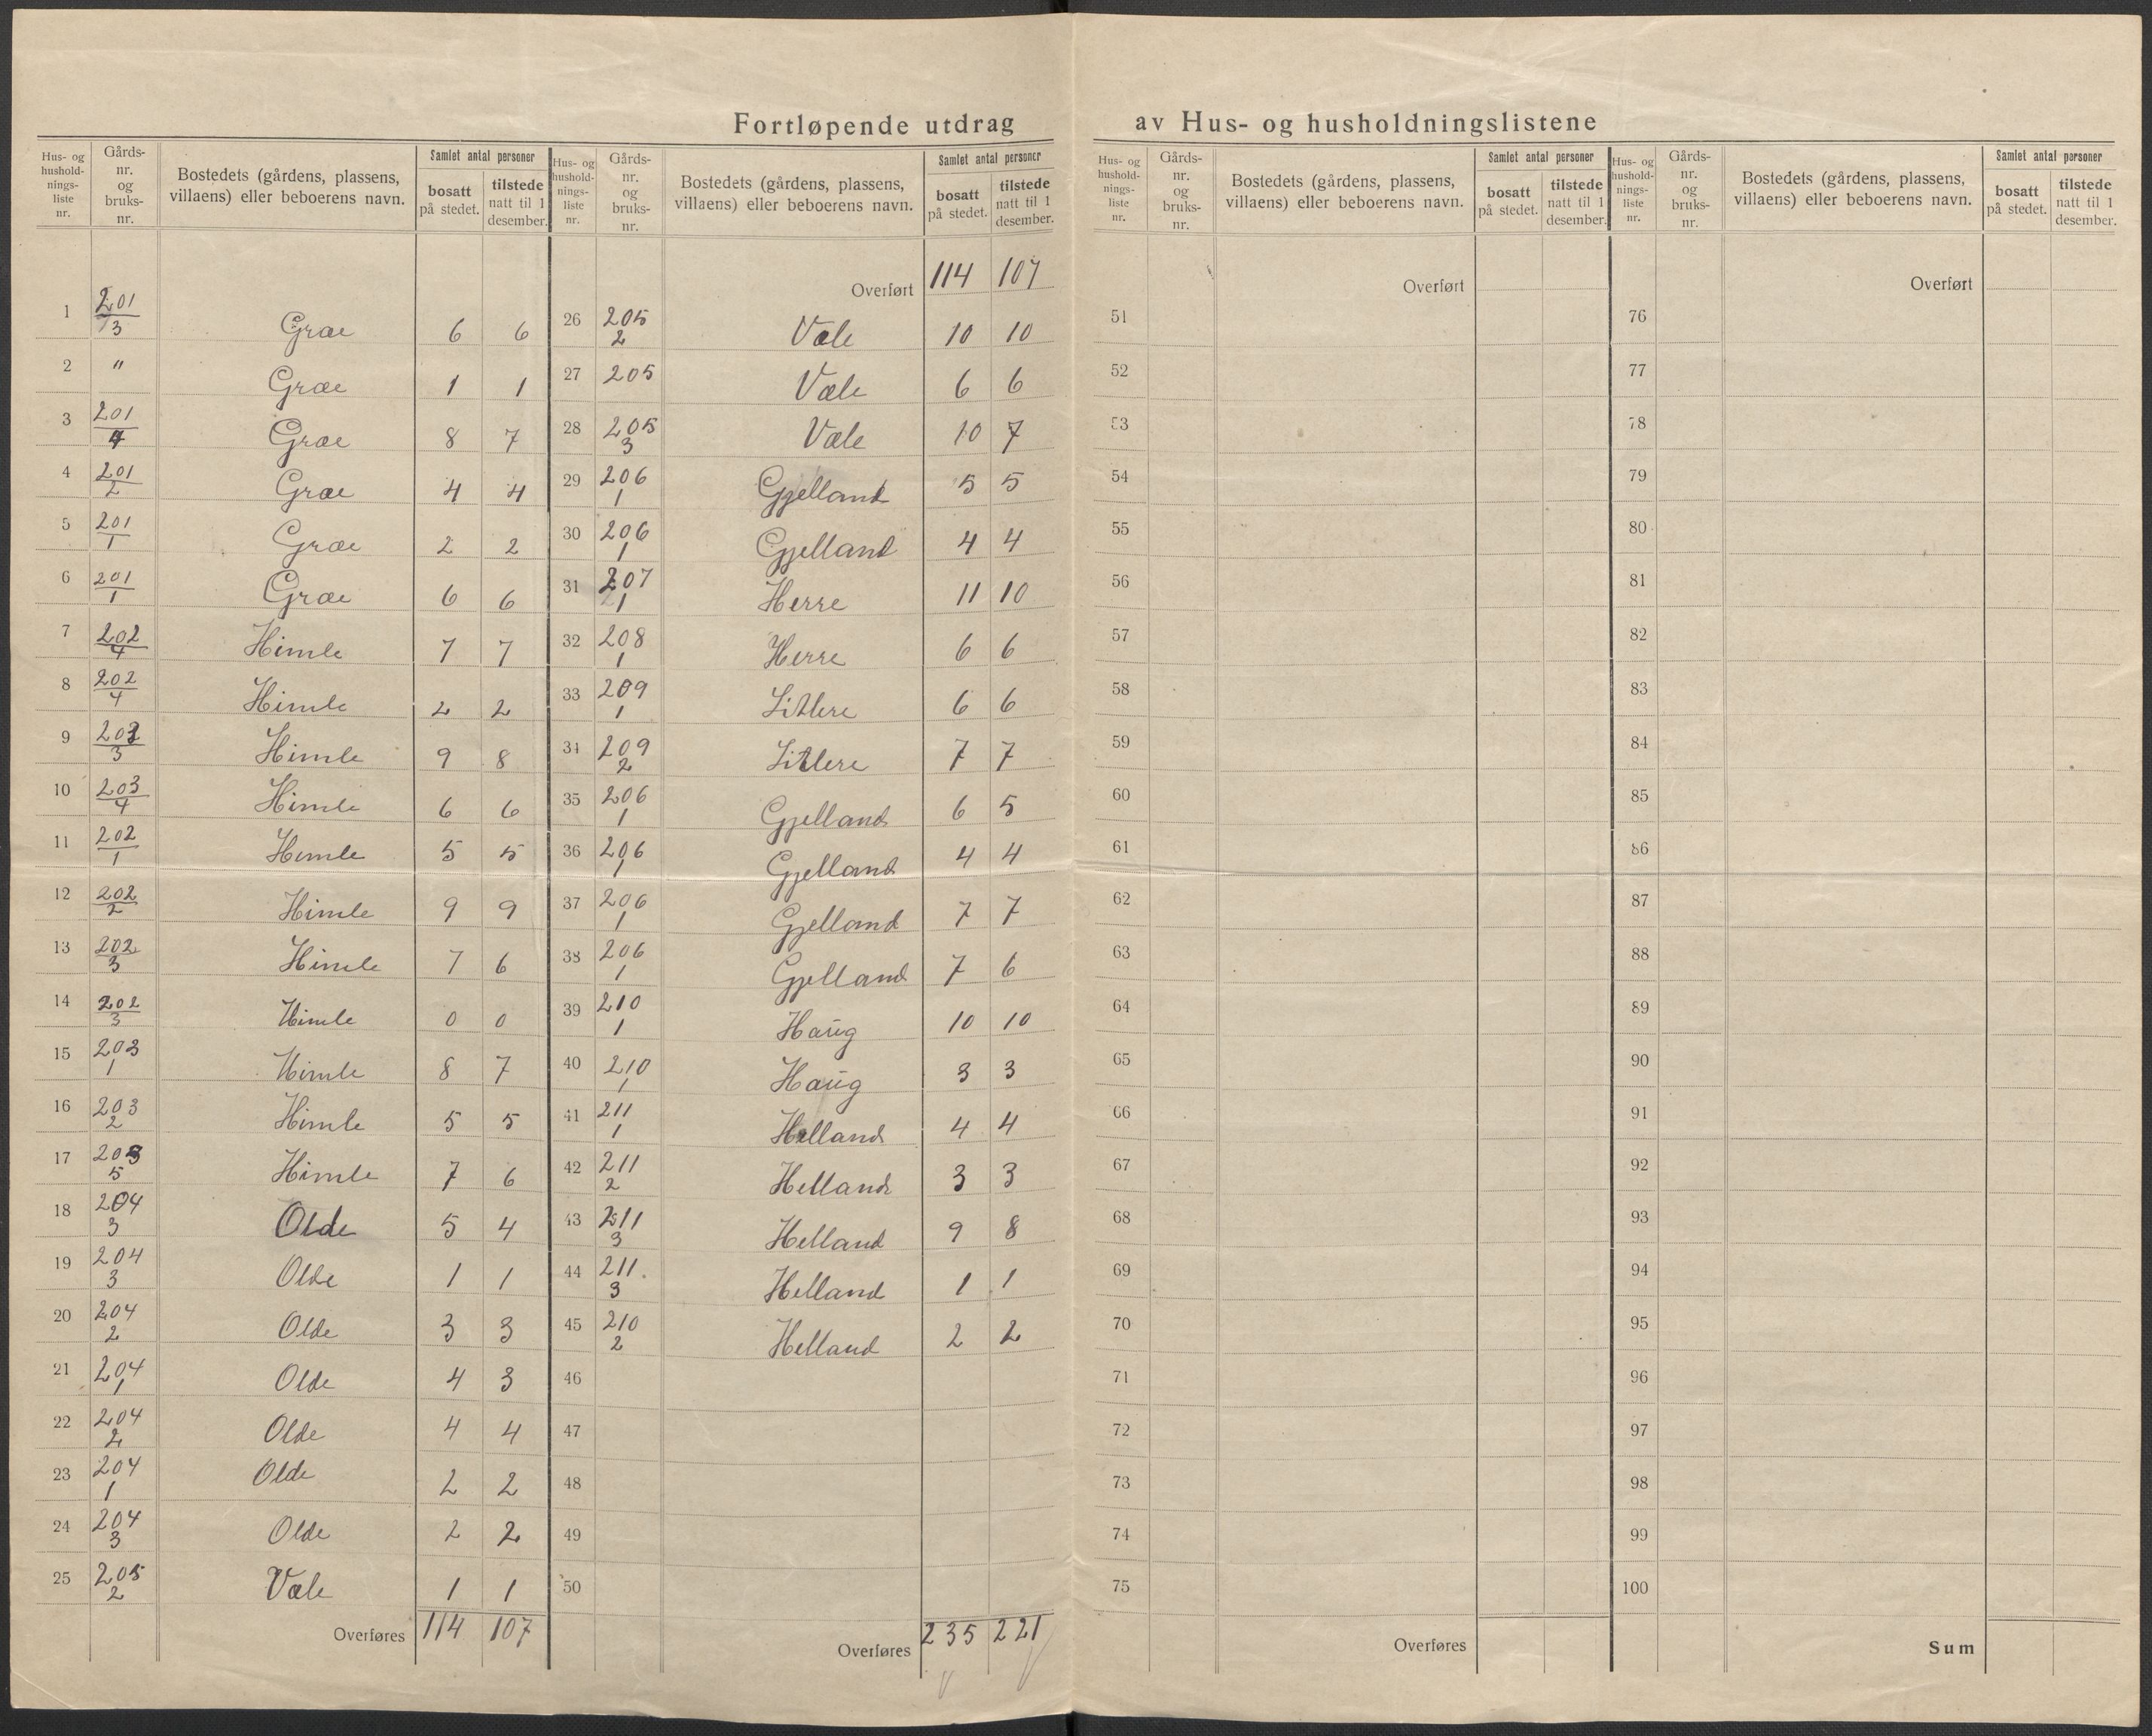 Fortløpende utdrag av Hus- og husholdningslistene
Hus- og hushold- nings- liste nr. | Gårds- nr. og bruks- nr. | Bostedets (gårdens, plassens, villaens) eller beboerens navn. | Samlet antal personer | bosatt på stedet. | tilstede natt til 1 desember.
1 201/3 Græe 6 6
2 " Græe 1 1
3 201/4 Græe 8 7
4 201/2 Græe 4 4
5 201/1 Græe 2 2
6 201/1 Græe 6 6
7 202/4 Himle 7 7
8 202/4 Himle 2 2
9 203/3 Himle 9 8
10 203/4 Himle 6 6
11 202/1 Himle 5 5
12 202/2 Himle 9 9
13 202/3 Himle 7 6
14 202/3 Himle 0 0
15 203/1 Himle 8 7
16 203/2 Himle 5 5
17 203/5 Himle 7 6
18 204/3 Olde 5 4
19 204/3 Olde 1 1
20 204/2 Olde 3 3
21 204/1 Olde 4 3
22 204/2 Olde 4 4
23 204/1 Olde 2 2
24 204/3 Olde 2 2
25 205/2 Væle 1 1
Overføres 114 107
Hus- og hushold- nings- liste nr. | Gårds- nr. og bruks- nr. | Bostedets (gårdens, plassens, villaens) eller beboerens navn. | Samlet antal personer | bosatt på stedet. | tilstede natt til 1 desember.
Overført 114 107
26 205/2 Væle 10 10
27 205 Væle 6 6
28 205/3 Væle 10 7
29 206/1 Gjelland 5 5
30 206/1 Gjelland 4 4
31 207/1 Herre 11 10
32 208/1 Herre 6 6
33 209/1 Litlere 6 6
34 209/2 Litlere 7 7
35 206/1 Gjelland 6 5
36 206/1 Gjelland 4 4
37 206/1 Gjelland 7 7
38 206/1 Gjelland 7 6
39 210/1 Haug 10 10
40 210/1 Haug 3 3
41 211/1 Helland 4 4
42 211/2 Helland 3 3
43 211/3 Helland 9 8
44 211/3 Helland 1 1
45 210/2 Helland 2 2
46
47
48
49
50
Overføres 235 221
Hus- og hushold- nings- liste nr. | Gårds- nr. og bruks- nr. | Bostedets (gårdens, plassens, villaens) eller beboerens navn. | Samlet antal personer | bosatt på stedet. | tilstede natt til 1 desember.
Overført
51
52
53
54
55
56
57
58
59
60
61
62
63
64
65
66
67
68
69
70
71
72
73
74
75
Overføres
Hus- og hushold- nings- liste nr. | Gårds- nr. og bruks- nr. | Bostedets (gårdens, plassens, villaens) eller beboerens navn. | Samlet antal personer | bosatt på stedet. | tilstede natt til 1 desember.
Overført
76
77
78
79
80
81
82
83
84
85
86
87
88
89
90
91
92
93
94
95
96
97
98
99
100
Sum